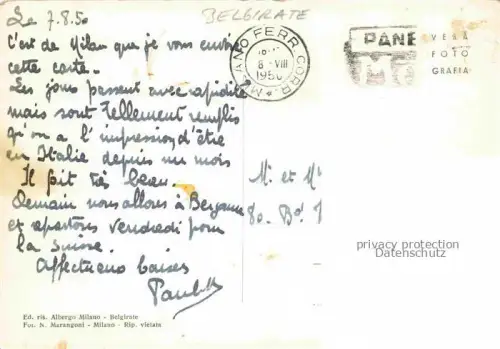 Le 7.8.50
BELGIRATE
C'est de Milan que je vous envoie
cette carte.
Les jours passent avec rapidité
mais sont tellement remplis
qu'on a l'impression d'être
en Italie depuis un mois
Il fait très beau.
Demain nous allons à Bergame
et repartons vendredi pour
la Suisse.
Affectueux baisers
MILANO FERR. CORR.
8 - VIII
1950
PANE
VERA
FOTO
GRAFIA
M. et M
80. Bd.
privacy protection
Datenschutz
Ed. ris. Albergo Milano - Belgirate
Fot. N. Marangoni - Milano - Rip. vietata